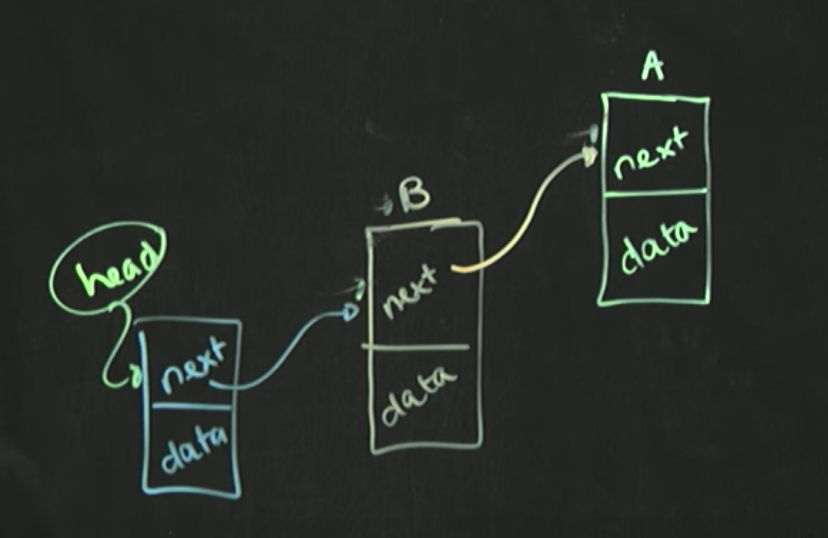 head
next
data
B
next
data
A
next
data